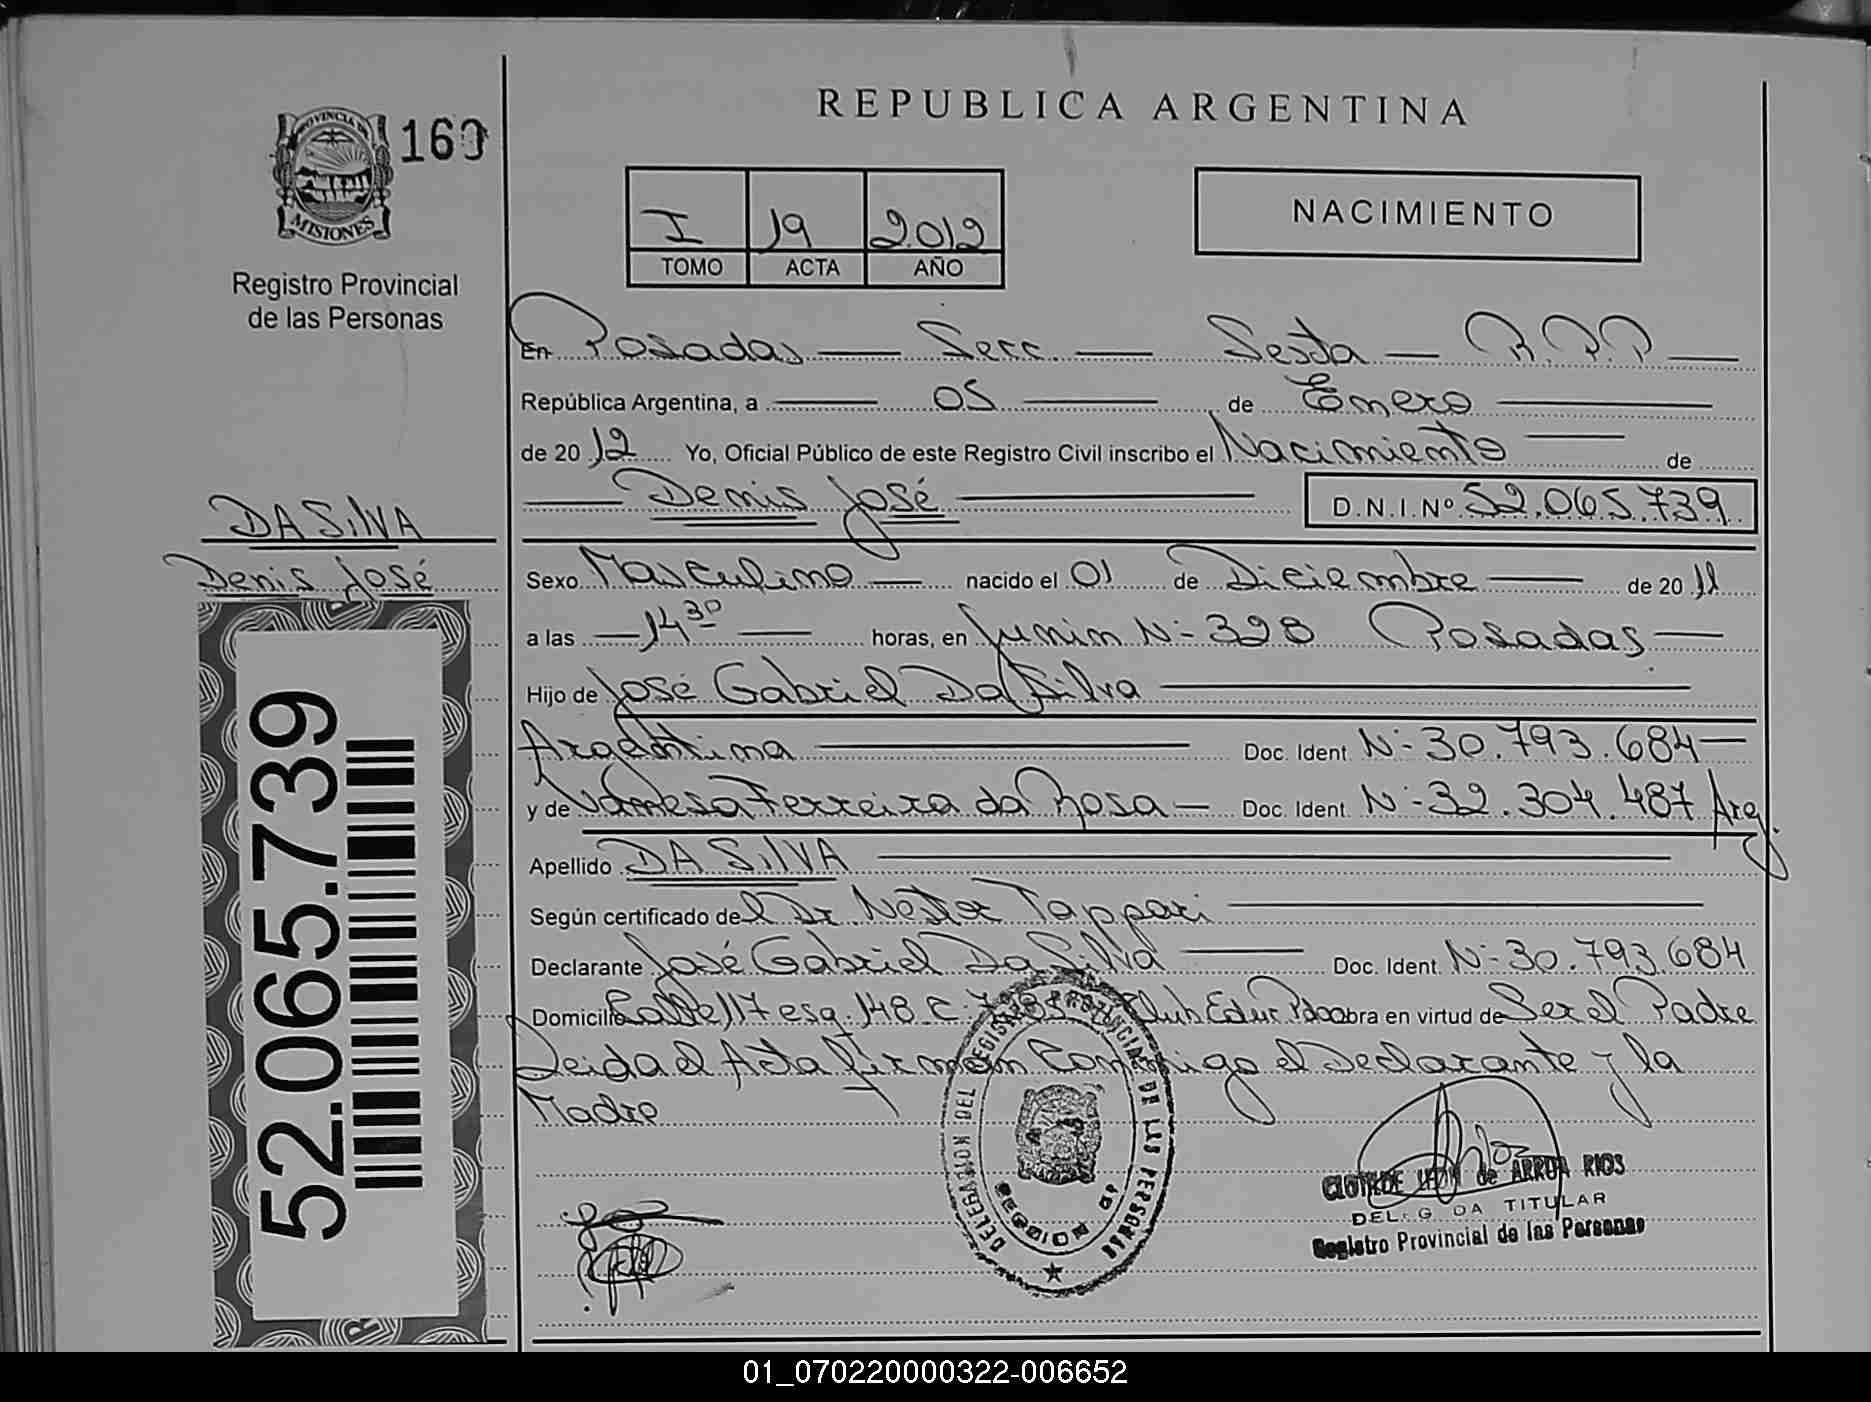 REPUBLICA ARGENTINA
PROVINCIA DE
MISIONES
160
Registro Provincial
de las Personas
I 19 2.012
TOMO ACTA AÑO
NACIMIENTO
En Posadas — Secc. — Sexta — R.P.P. —
República Argentina, a — 05 — de Enero —
de 20 12 Yo, Oficial Público de este Registro Civil inscribo el Nacimiento — de
— Denis José — D.N.I.Nº 52.065.739
DA SILVA
Denis José
52.065.739
Sexo Masculino — nacido el 01 de Diciembre — de 20 11
a las — 14 30 — horas, en Junin Nº 328 Posadas —
Hijo de José Gabriel Da Silva —
Argentina — Doc. Ident. Nº 30.793.684 —
y de Vanesa Ferreira da Rosa — Doc. Ident. Nº 32.304.487 Arg.
Apellido DA SILVA —
Según certificado del Dr. Nestor Tappari —
Declarante José Gabriel Da Silva — Doc. Ident. Nº 30.793.684
Domicilio Calle 117 esq. 148 C. obra en virtud de Ser el Padre
Leida el Acta firman Conmigo el Declarante y la
Madre
DELEGACION DEL REGISTRO PROVINCIAL DE LAS PERSONAS
CLOTILDE LEON de ARRUA RIOS
DELEGADA TITULAR
Registro Provincial de las Personas
01_070220000322-006652